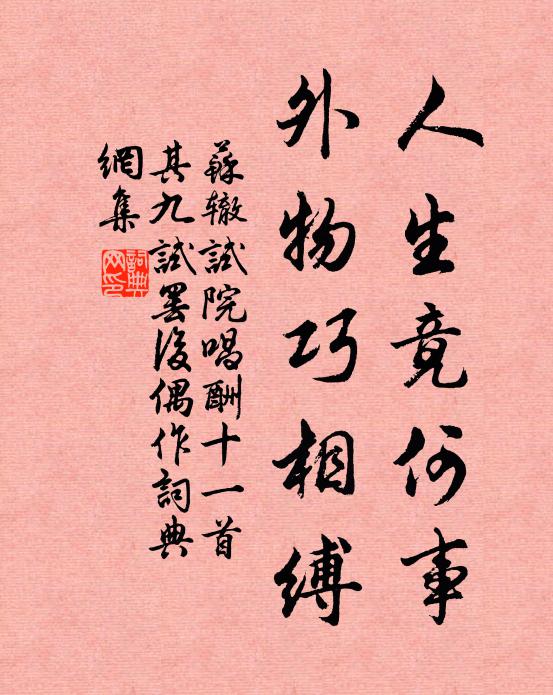 人生竟何事
外物巧相縛
蘇辙試院唱酬十一首
其九試罷後偶作詞典
網集
詞典網印